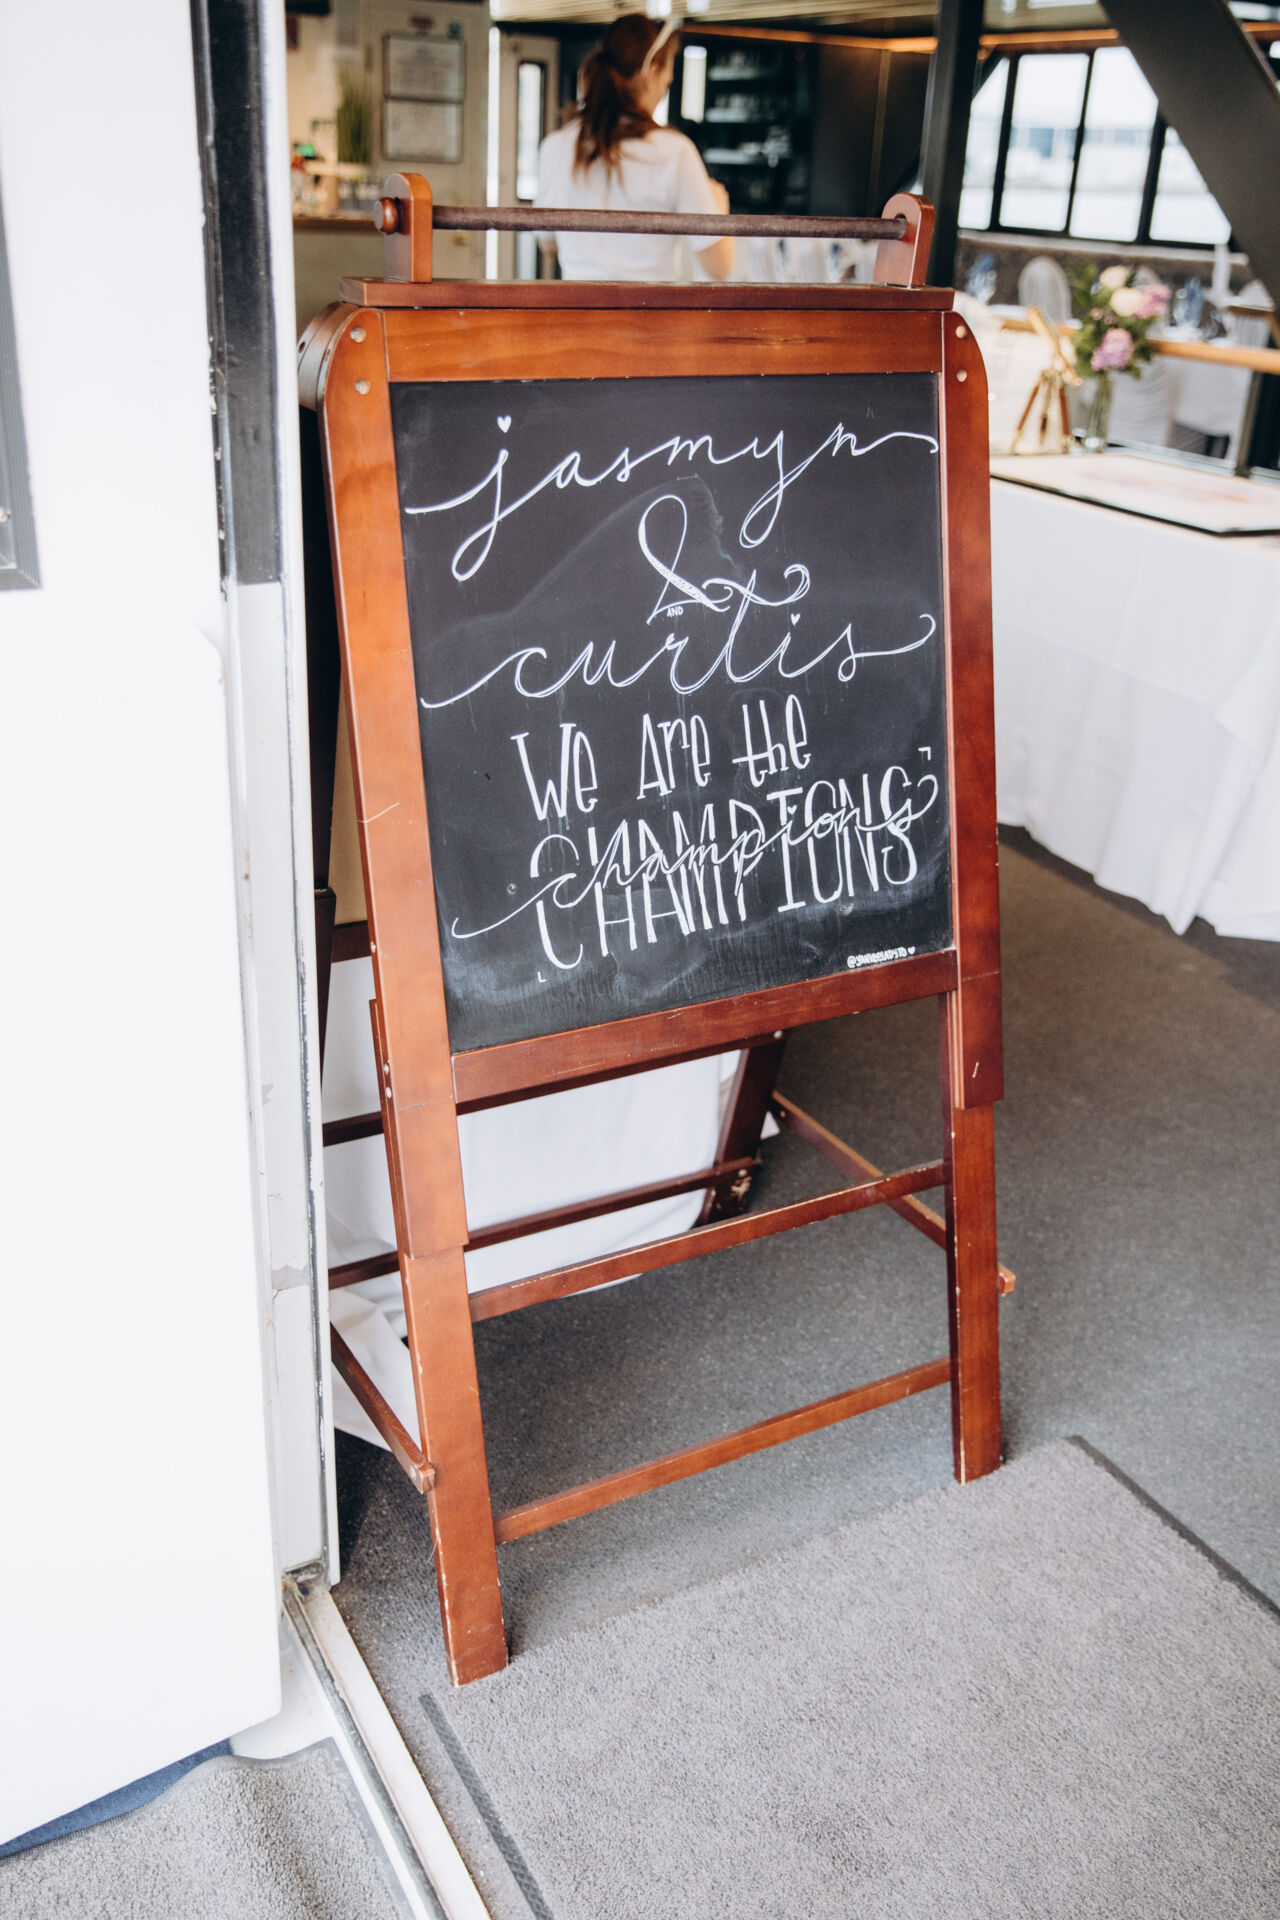 jasmyn
&
AND
curtis
We Are the
CHAMPIONS
champions
@YANKEELADYTO